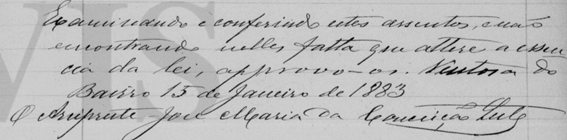 Examinando e conferindo estes assentos, e não
encontrando nelles falta que altere a essen
cia da lei, approvo-os. Ventosa do
Bairro 15 de Janeiro de 1883
O Arcipreste José Maria da Conceição